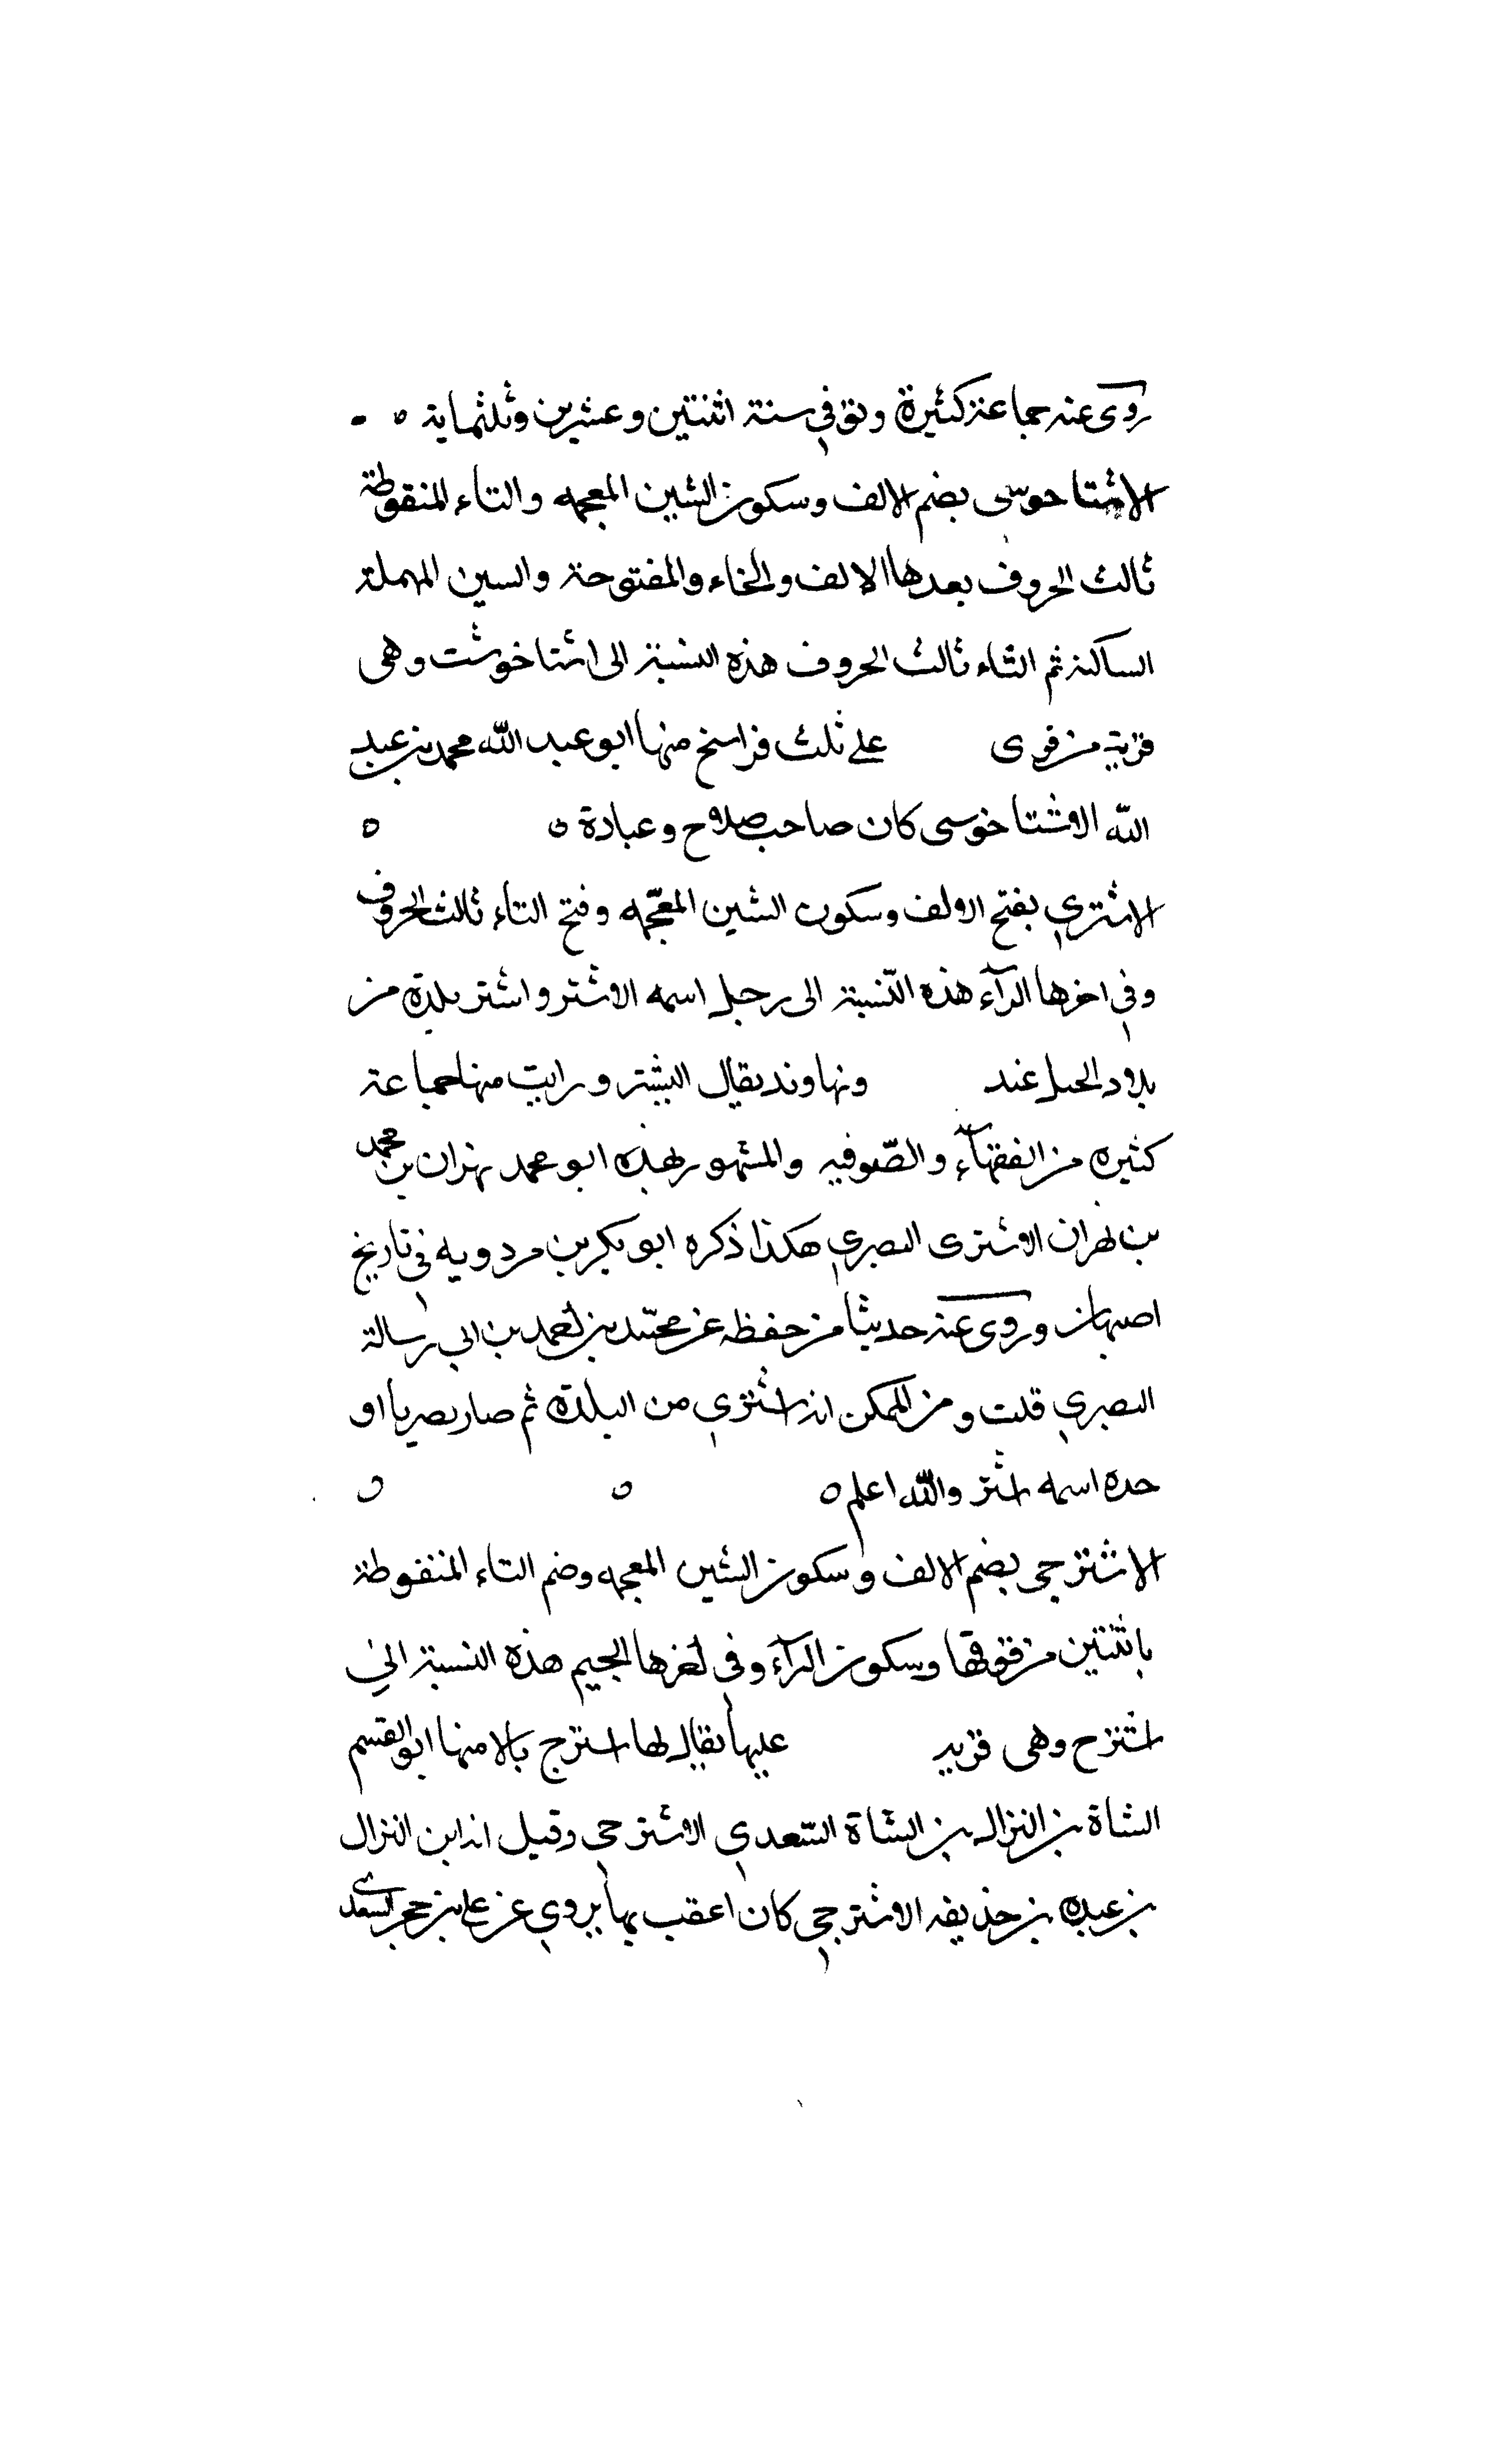 روى عنه جماعة كثيرة وتوفي سنة اثنتين وعشرين وثلثماية ه
الاشتاخوسى بضم الالف وسكون الشين المعجمه والتاء المنقوطة
ثالث الحروف بعدها الالف والخاء والمفتوحة والسين المهملة
الساكنة ثم التاء ثالث الحروف هذه النسبة الى اشتاخوشت وهى
قرية من قرى على ثلث فراسخ منها ابو عبد الله محمد بن عبد
الله الاشتاخوسى كان صاحب صلاح وعبادة ه ه
الاشتري بفتح الالف وسكون الشين المعجمه وفتح التاء ثالث الحروف
وفي اخرها الرآء هذه النسبة الى رجل اسمه الاشتر واشتر بلدة من
بلاد الجبل عند ونهاوند يقال البشتر ورايت منها جماعة
كثيره من الفقهآء والصّوفيه والمشهور بهذه ابو محمد مهران بن محمد
بن مهران الاشترى البصري هكذا ذكره ابو بكر بن مردويه في تاريخ
اصبهان وروى عنه حديثا من حفظه عن محمد بن احمد بن ابي رسالة
البصري قلت ومن الممكن انه اشتري من البلدة ثم صار بصريا او
جده اسمه اشتر والله اعلم ه ه ه
الاشترجى بضم الالف وسكون الشين المعجمه وضم التاء المنقوطة
باثنتين من فوقها وسكون الرآء وفي اخرها الجيم هذه النسبة الي
اشترج وهى قرية عليها يقال لها اشترج بالا منها ابو القسم
الشاة بن النزال بن الشاة السّعدي الاشترجي وقيل انه ابن النزال
بن عبده بن حذيفه الاشترجي كان اعقب بها يروي عن علي بن حجر السعدى